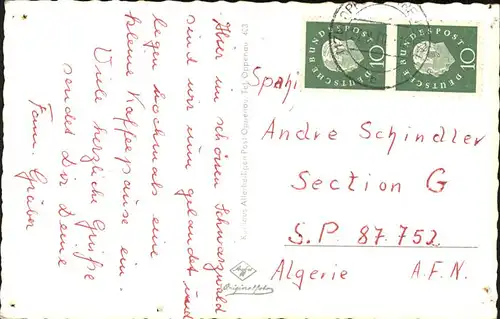 Hier im schönen Schwarzwald
sind wir nun gelandet und
legen nochmals eine
kleine Kaffeepause ein.
Viele herzliche Grüße
sendet Dir Deine
Fam. Gräber
Post Oppenau, Tel. Oppenau 463
Agfa
Originalfoto
DEUTSCHE BUNDESPOST
10
DEUTSCHE BUNDESPOST
10
Spahi
Andre Schindler
Section G
S.P. 87.752
Algerie A.F.N.